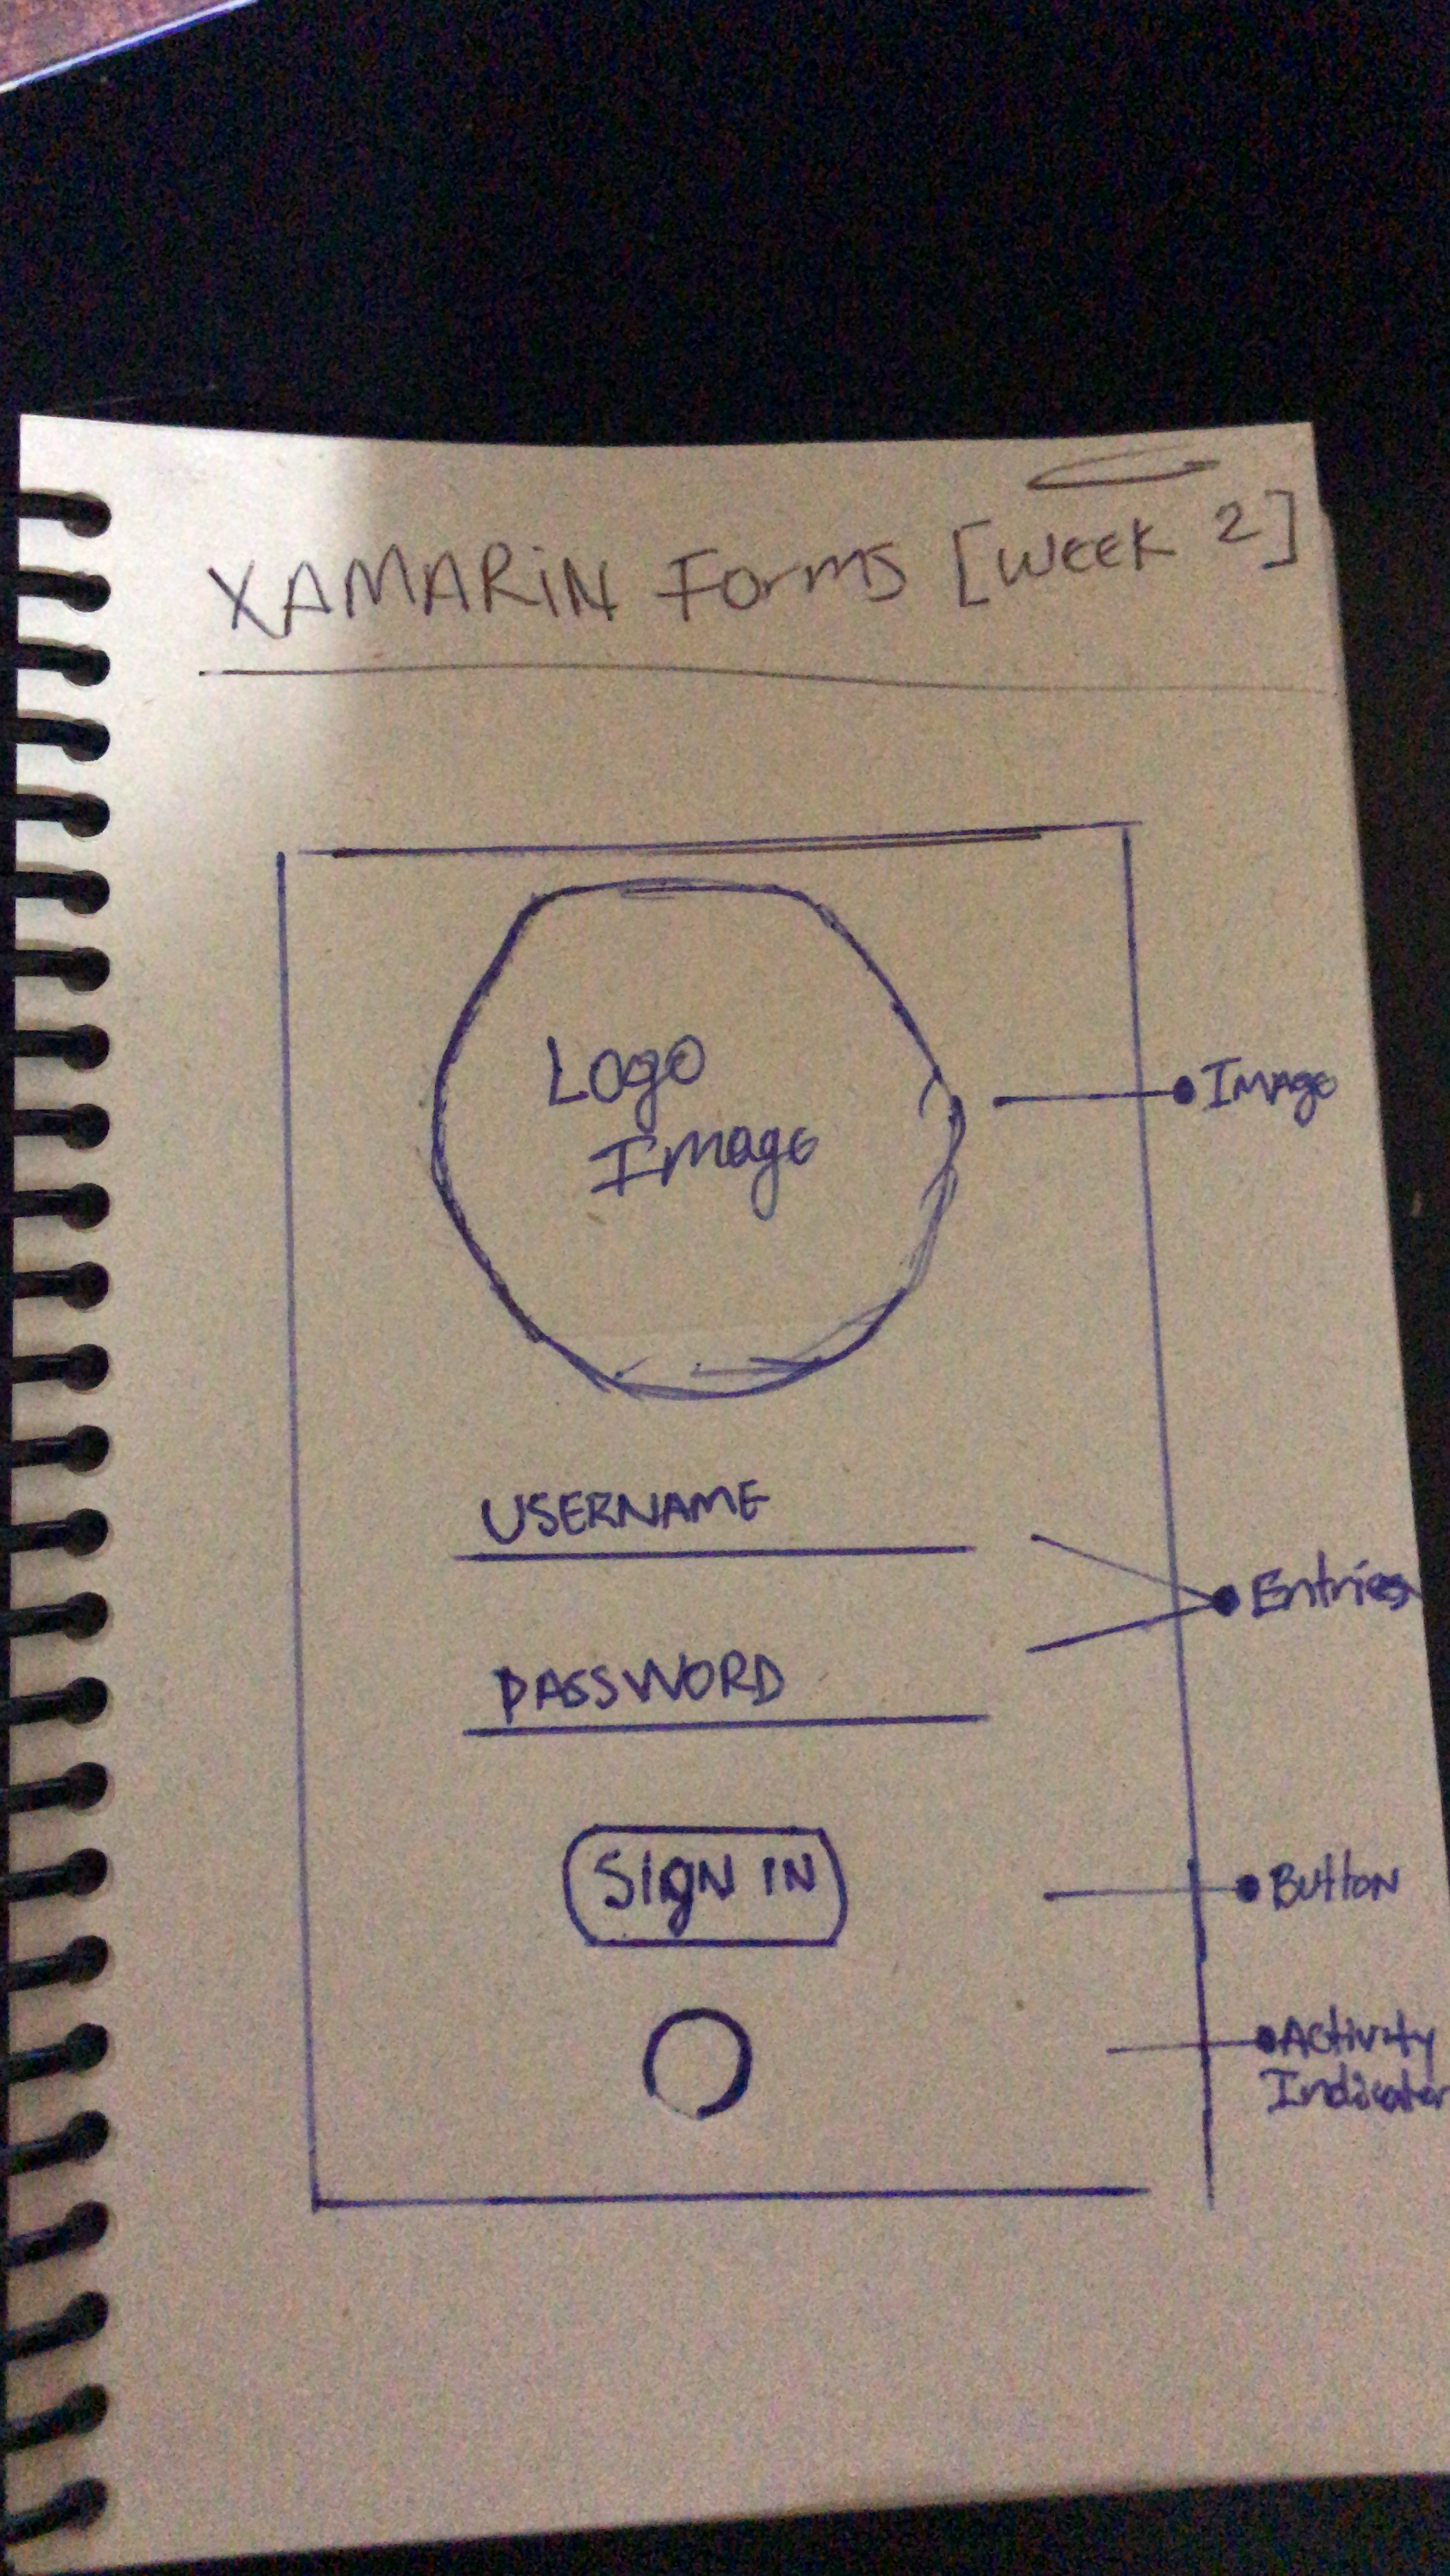 XAMARIN Forms [Week 2]
Logo
Image
Image
USERNAME
Entries
PASSWORD
SIGN IN
Button
Activity
Indicator